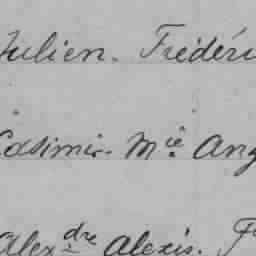 Julien. Frédéri
Casimir. Mie Ang
Alexdre Alexis. F